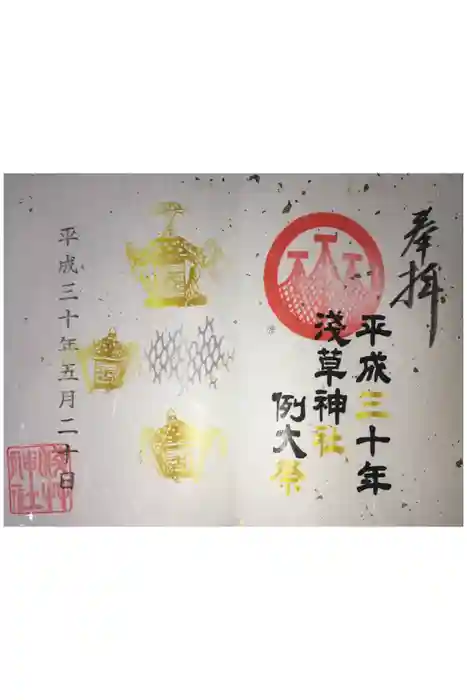 奉拝
平成三十年
浅草神社
例大祭
平成三十年五月二十日
浅草神社